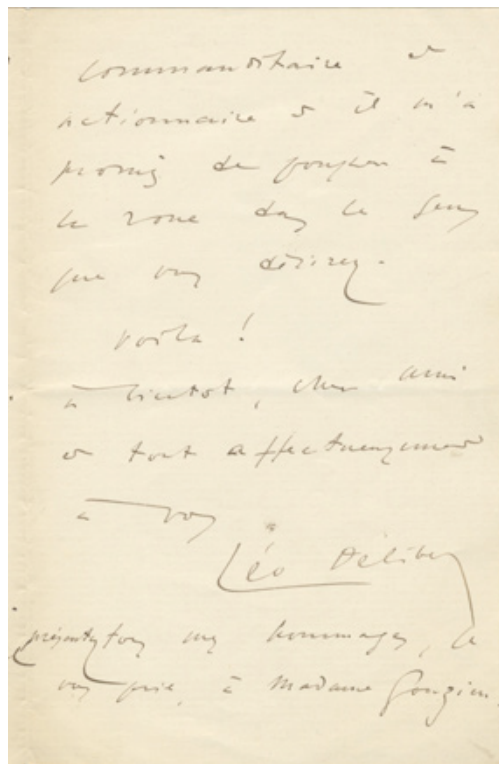 commanditaire et
actionnaire et il m'a
promis de pousser à
la roue dans le sens
que vous désirez.
voilà !
à bientôt, cher ami
et tout affectueusement
à vous
Léo Delibes
présentez tous mes hommages, je
vous prie, à Madame Gouzien.